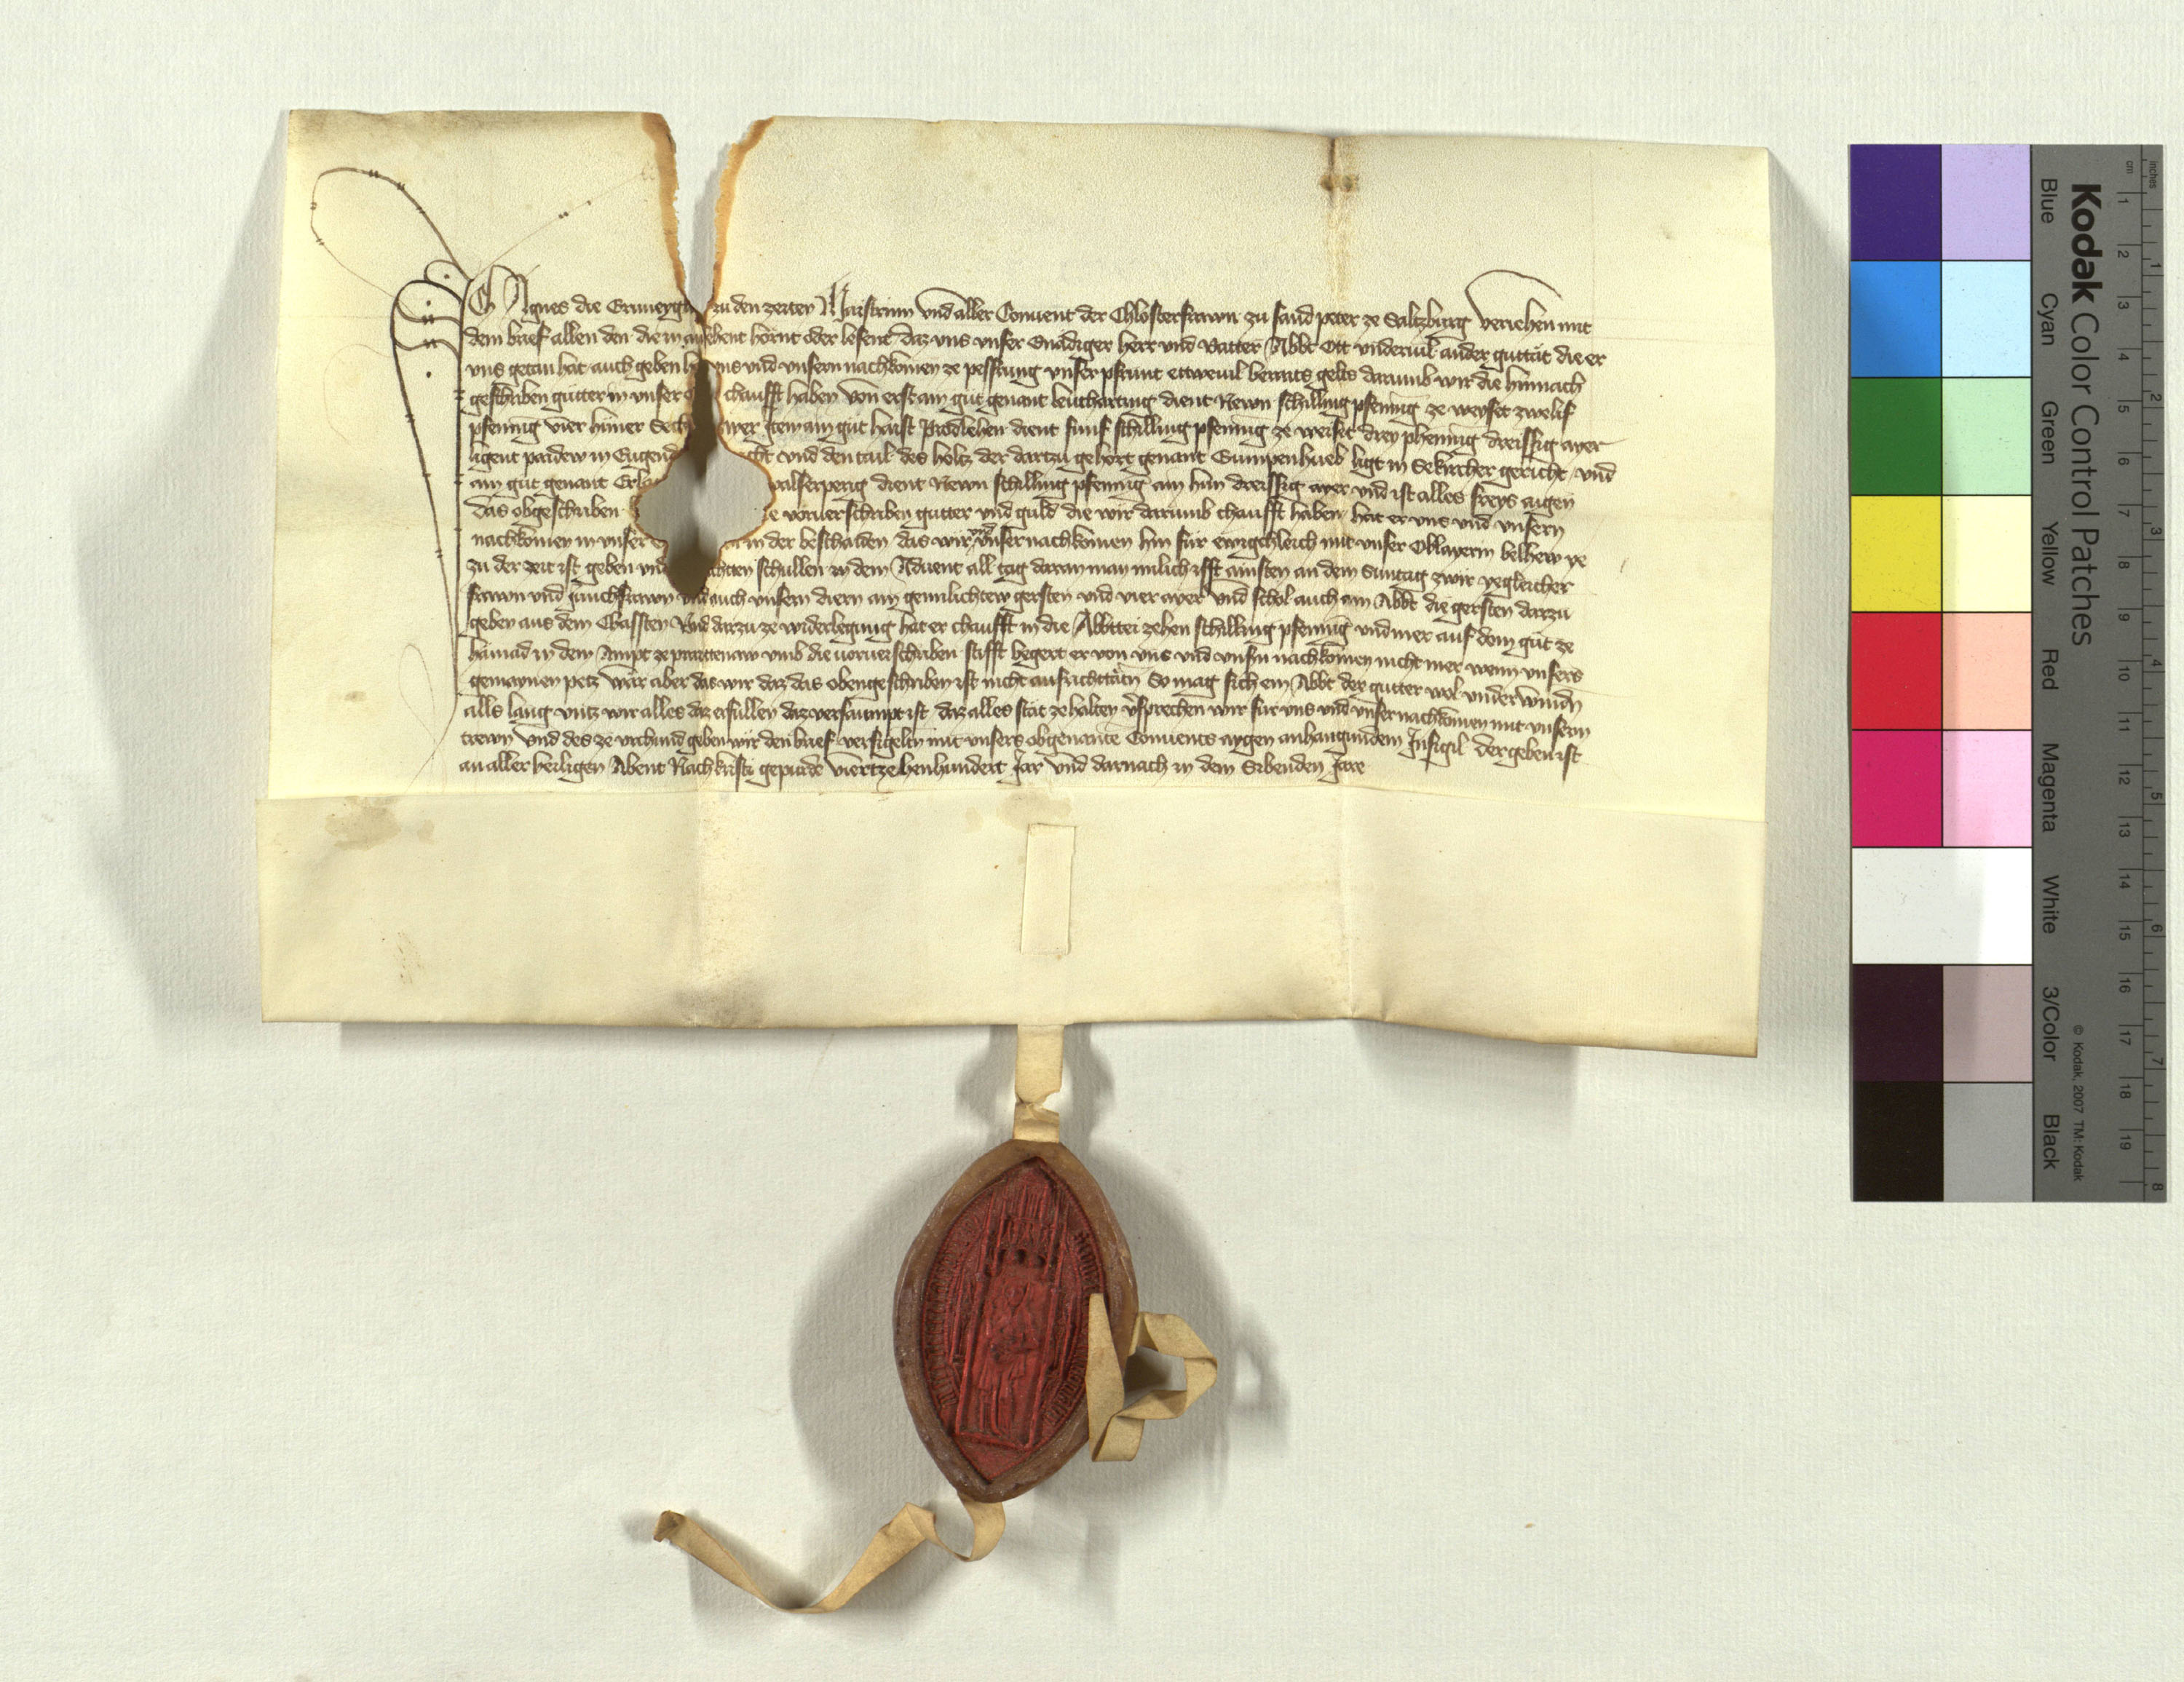 Ich Agnes die Grimeygk zu den zeiten Maistrinn vnd aller Conuent der Chlosterfrawn zu sand peter ze Saltzburg veriehen mit
dem brief allen den die in ansehent hörnt oder lesent daz vns vnser Gnädiger herr vnd Vatter Abbt Ott vnderuil ander guttät die er
vns getan hat auch geben hat vns vnd vnsern nachkomen ze pessrung vnser pfrunt ettweuil beraits gelts darumb wir die hinnach
geschriben gütter in vnser chaufft haben Von erst ain gut genant leuthartting dient Newn schilling pfening ze weyset zwelif
pfening vier hüner Sech ayer Item ain gut haist Prodlehen dient fünf schilling pfening ze weiset drey phening dreissig ayer
ligent paidew in Eugend cht vnd den tail des holtz der dartzu gehört genant Gumpenhueb ligt in Sekircher gericht / vnd
ain gut genant Erla walserperig dient Newn schilling pfening ain hün dreissig ayer vnd ist alles freys aigen
das obgeschriben e voruerschriben gutter vnd guld die wir darumb chaufft haben hat er vns vnd vnsern
nachkomen in vnser in der beschaiden das wir vnd vnser nachkomen hin für ewigchleich mit vnser Oblayerin welhew ye
zu der zeit ist geben vnd achten schullen in dem Aduent all tag daran man milich isst ainsten an dem Suntag zwir yegleicher
frawn vnd junchfrawn vnd auch vnsern diern ain gemilichtew gersten vnd vier ayer vnd schol auch ain Abbt die gersten darzu
geben aus dem Chassten Vnd darzu ze widerlegung hat er chaufft in die Abbttei zehen schilling pfening vnd mer auf dem gut ze
hainad in dem Ampt ze praittenaw vmb die voruerschriben stifft begert er von vns vnd vnsn nachkomen nicht mer wenn vnsers
gemaynen petz wär aber das wir daz das obengeschriben ist nicht ausrichttätn So mag sich ein Abbt der gutter wol vnderwindn
alls lang vntz wir alles daz erfüllen daz versaumpt ist daz alles stät ze halten vsprechen wir für vns vnd vnser nachkomen mit vnsern
trewn Vnd des ze vrchund geben wir den brief versigeltn mit vnsers obgenante Conuents aygen anhangundem Insigil der geben ist
an aller heiligen Abent Nach kristi gepurde viertzehenhundert Jar vnd darnach in dem Sibenden Jare
Kodak Color Control Patches
Blue Cyan Green Yellow Red Magenta White 3/Color Black
© Kodak, 2007 TM: Kodak
cm 1 2 3 4 5 6 7 8 9 10 11 12 13 14 15 16 17 18 19
inches 1 2 3 4 5 6 7 8